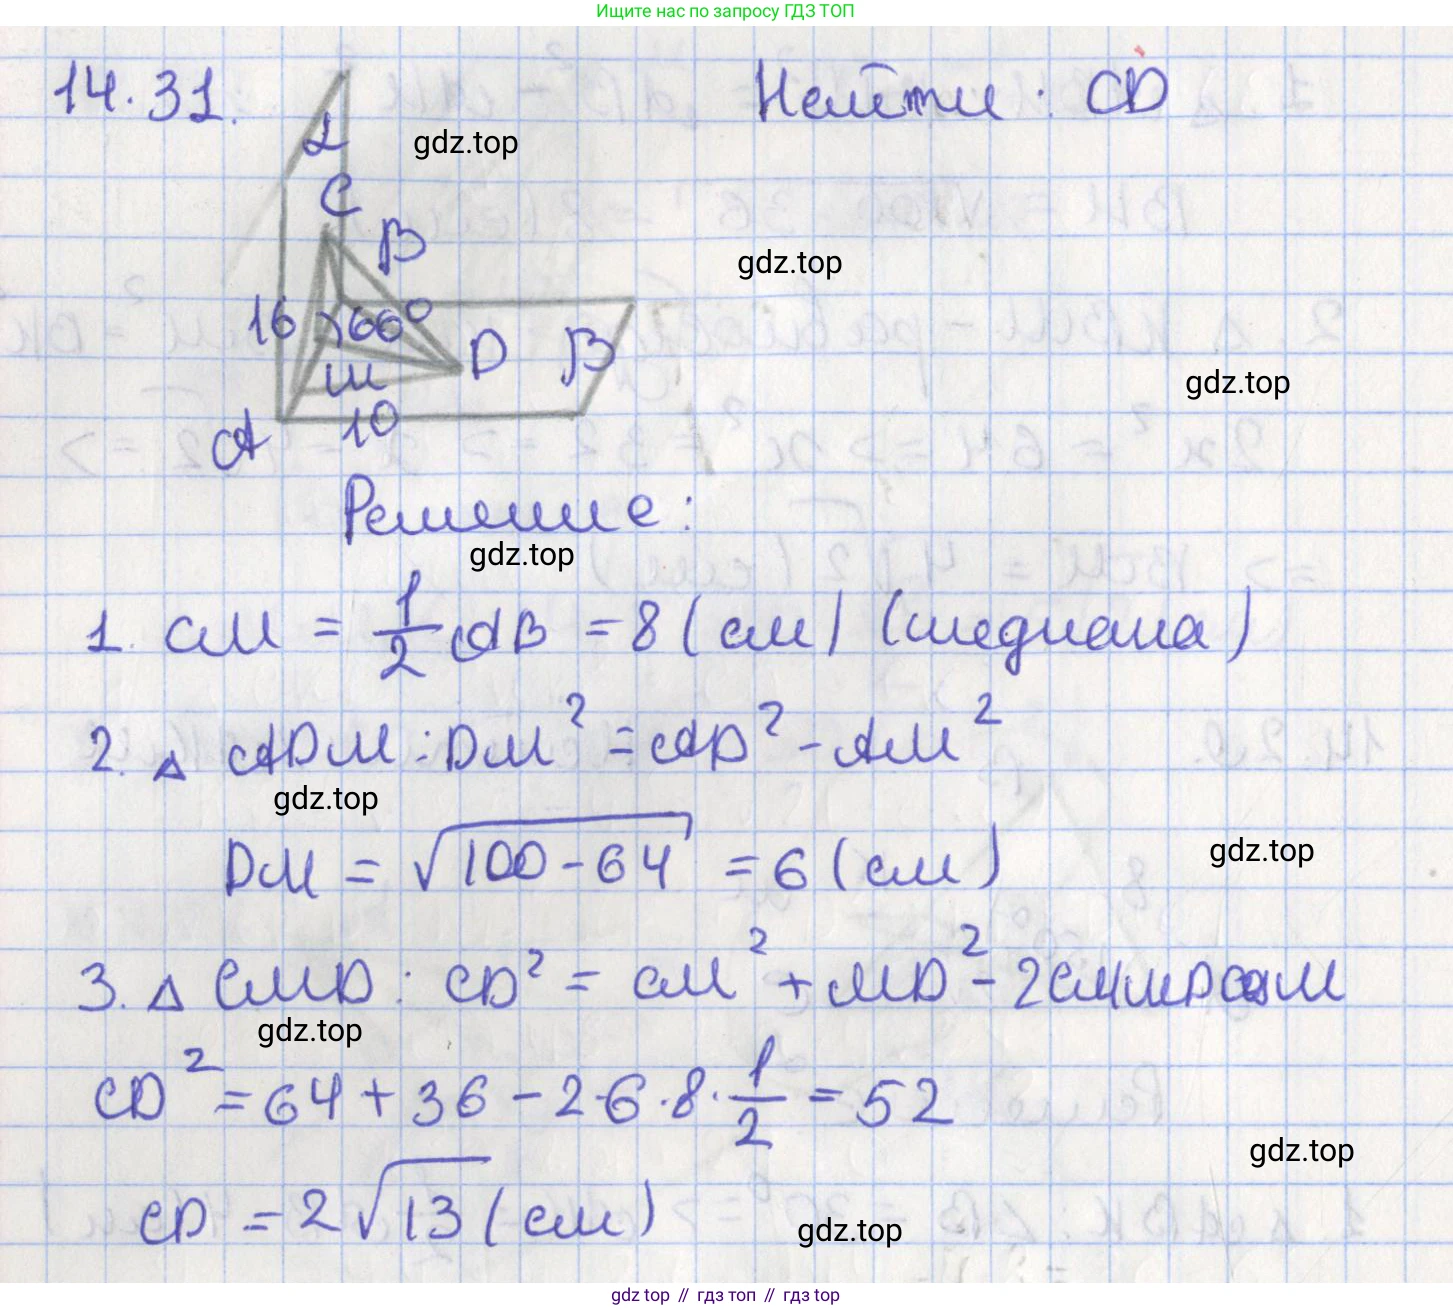 Ищите нас по запросу ГДЗ ТОП
14.31.
Найти: CD
α
gdz.top
C
B
gdz.top
16
60°
D
β
M
gdz.top
A
10
Решение:
gdz.top
1. CM = 1/2 AB = 8 (см) (медиана)
2. △ ADM: DM² = AD² - AM²
gdz.top
DM = √100-64 = 6 (см)
gdz.top
3. △ CMD: CD² = CM² + MD² - 2CM·MD cosM
gdz.top
CD² = 64 + 36 - 2·6·8·1/2 = 52
gdz.top
CD = 2√13 (см)
gdz.top
gdz top // гдз топ // gdz top